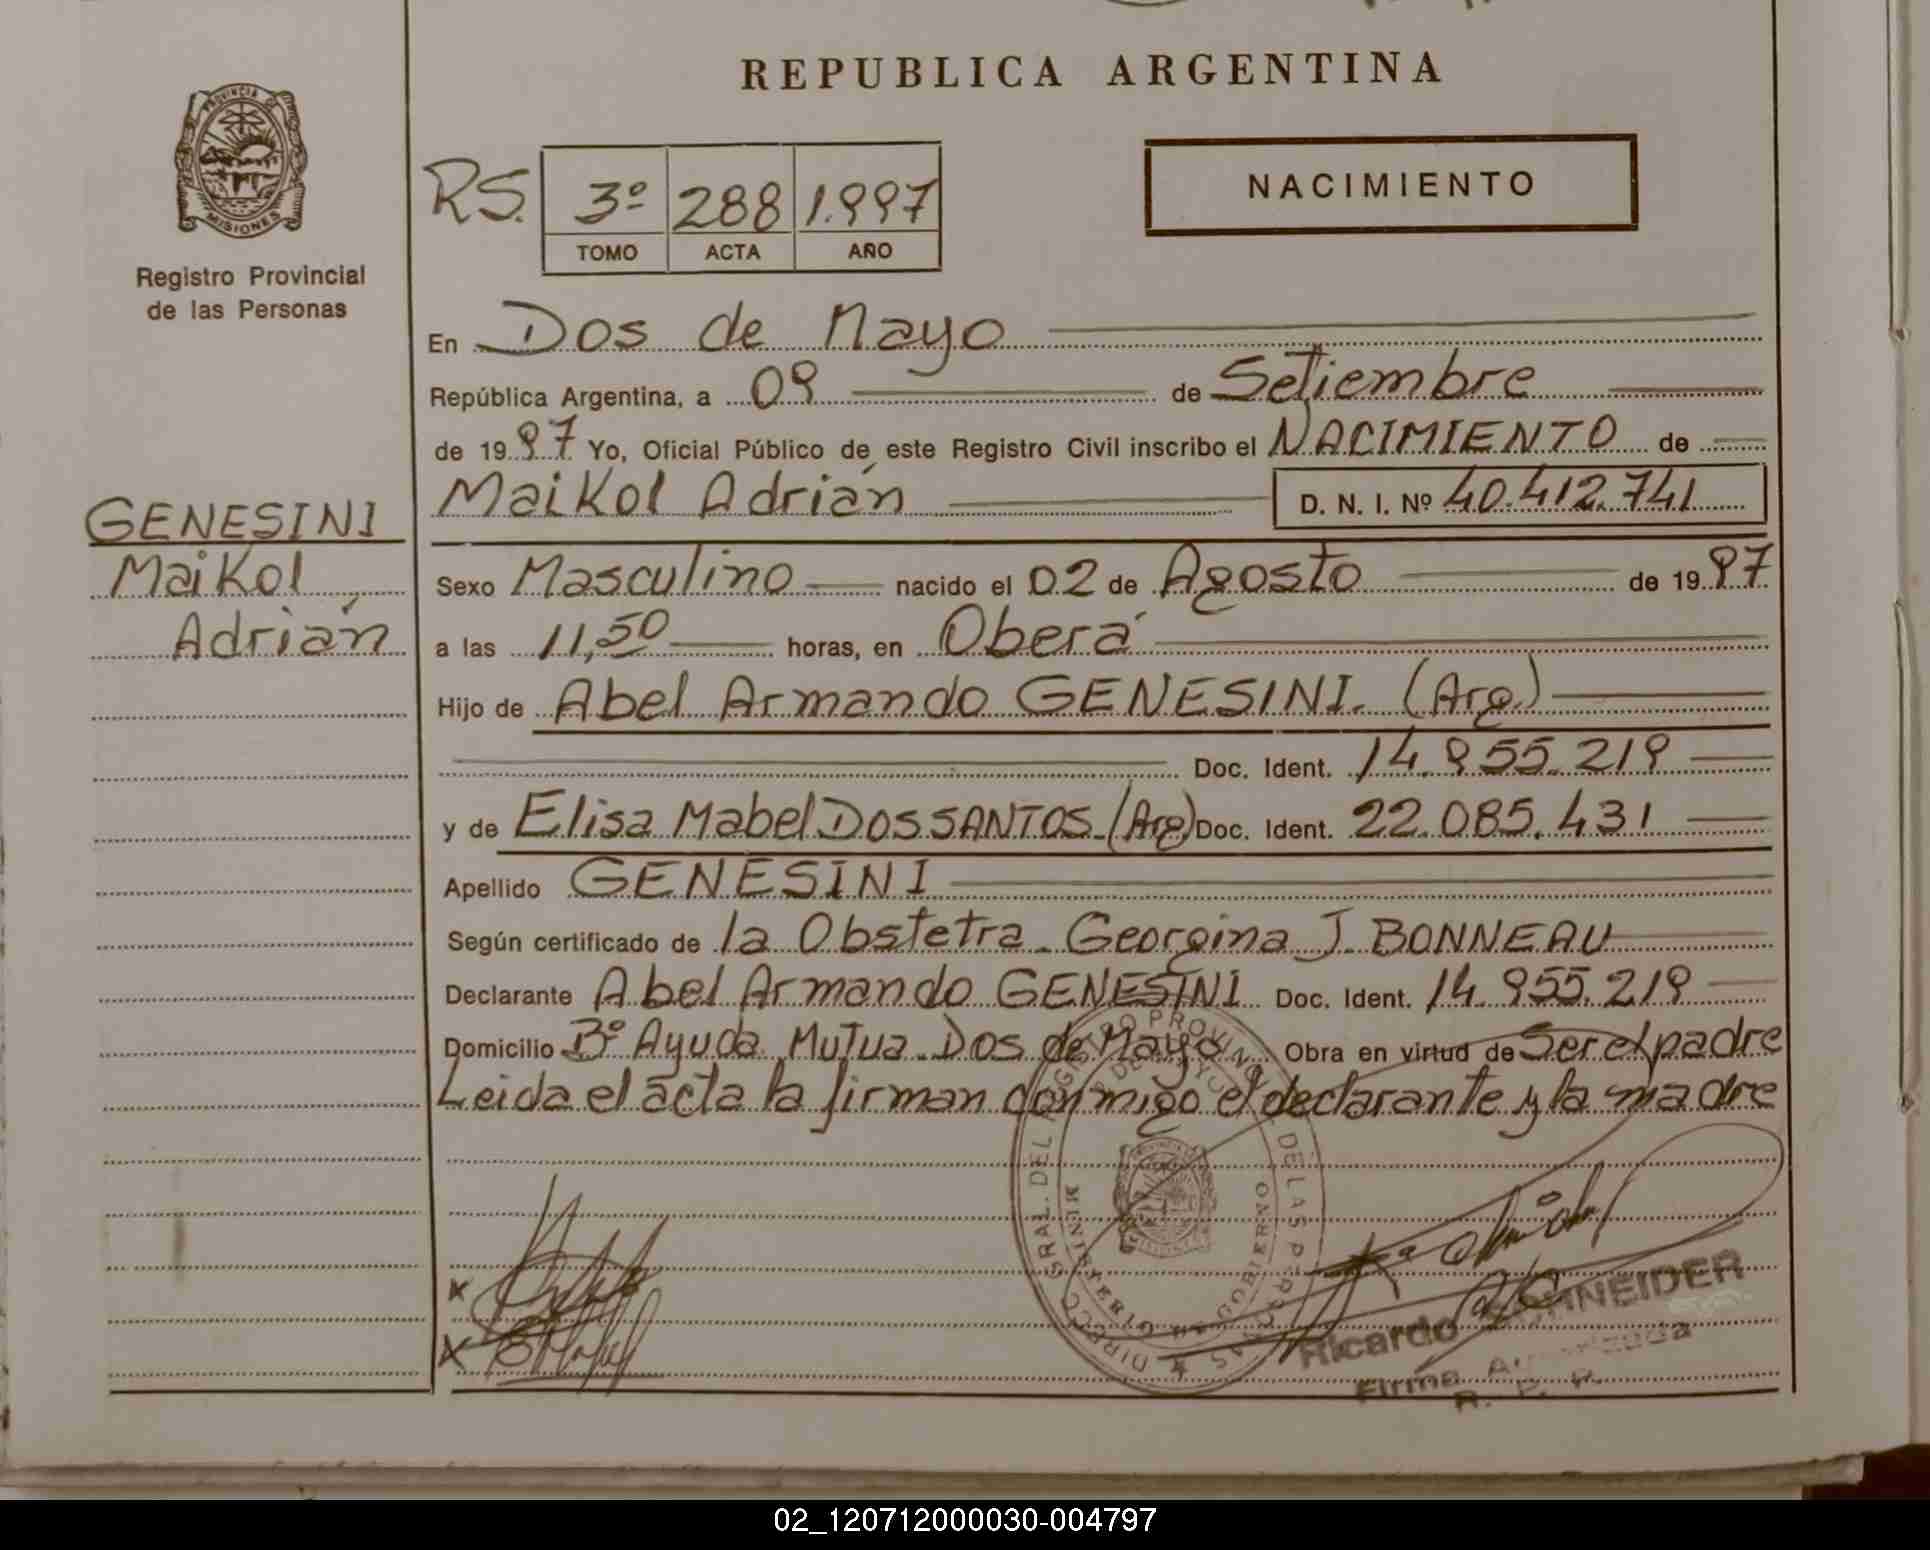 REPUBLICA ARGENTINA
PROVINCIA DE
MISIONES
Registro Provincial
de las Personas
RS. 3º 288 1.997
TOMO ACTA AÑO
NACIMIENTO
En Dos de Mayo
República Argentina, a 09 de Setiembre
de 1997 Yo, Oficial Público de este Registro Civil inscribo el NACIMIENTO de
Maikol Adrián D. N. I. Nº 40.412.741
GENESINI
Maikol
Adrián
Sexo Masculino nacido el 02 de Agosto de 1997
a las 11,50 horas, en Oberá
Hijo de Abel Armando GENESINI. (Arg)
Doc. Ident. 14.955.219
y de Elisa Mabel DOS SANTOS (Arg) Doc. Ident. 22.085.431
Apellido GENESINI
Según certificado de la Obstetra Georgina J. BONNEAU
Declarante Abel Armando GENESINI Doc. Ident. 14.955.219
Domicilio Bº Ayuda Mutua Dos de Mayo Obra en virtud de Ser el padre
Leida el acta la firman conmigo el declarante y la madre
DIRECC. GRAL. DEL REGISTRO PROVINCIAL DE LAS PERSONAS
Ricardo SCHNEIDER
Firma Autorizada
R. P. P.
02_120712000030-004797